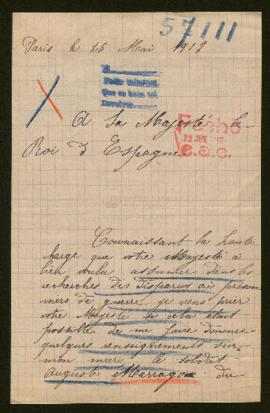 57111
Paris le 25 Mai 1917
Pedir informes
Que se hace así
Fecho
A Sa Majesté le
Roi d'Espagne
Connaissant la haute
charge que votre Majesté à
bien voulu assumer dans les
recherches des disparus où prison
niers de guerre, je viens prier
votre Majesté si cela était
possible de me faire donner
quelques renseignements sur
mon mari le soldat
Auguste du